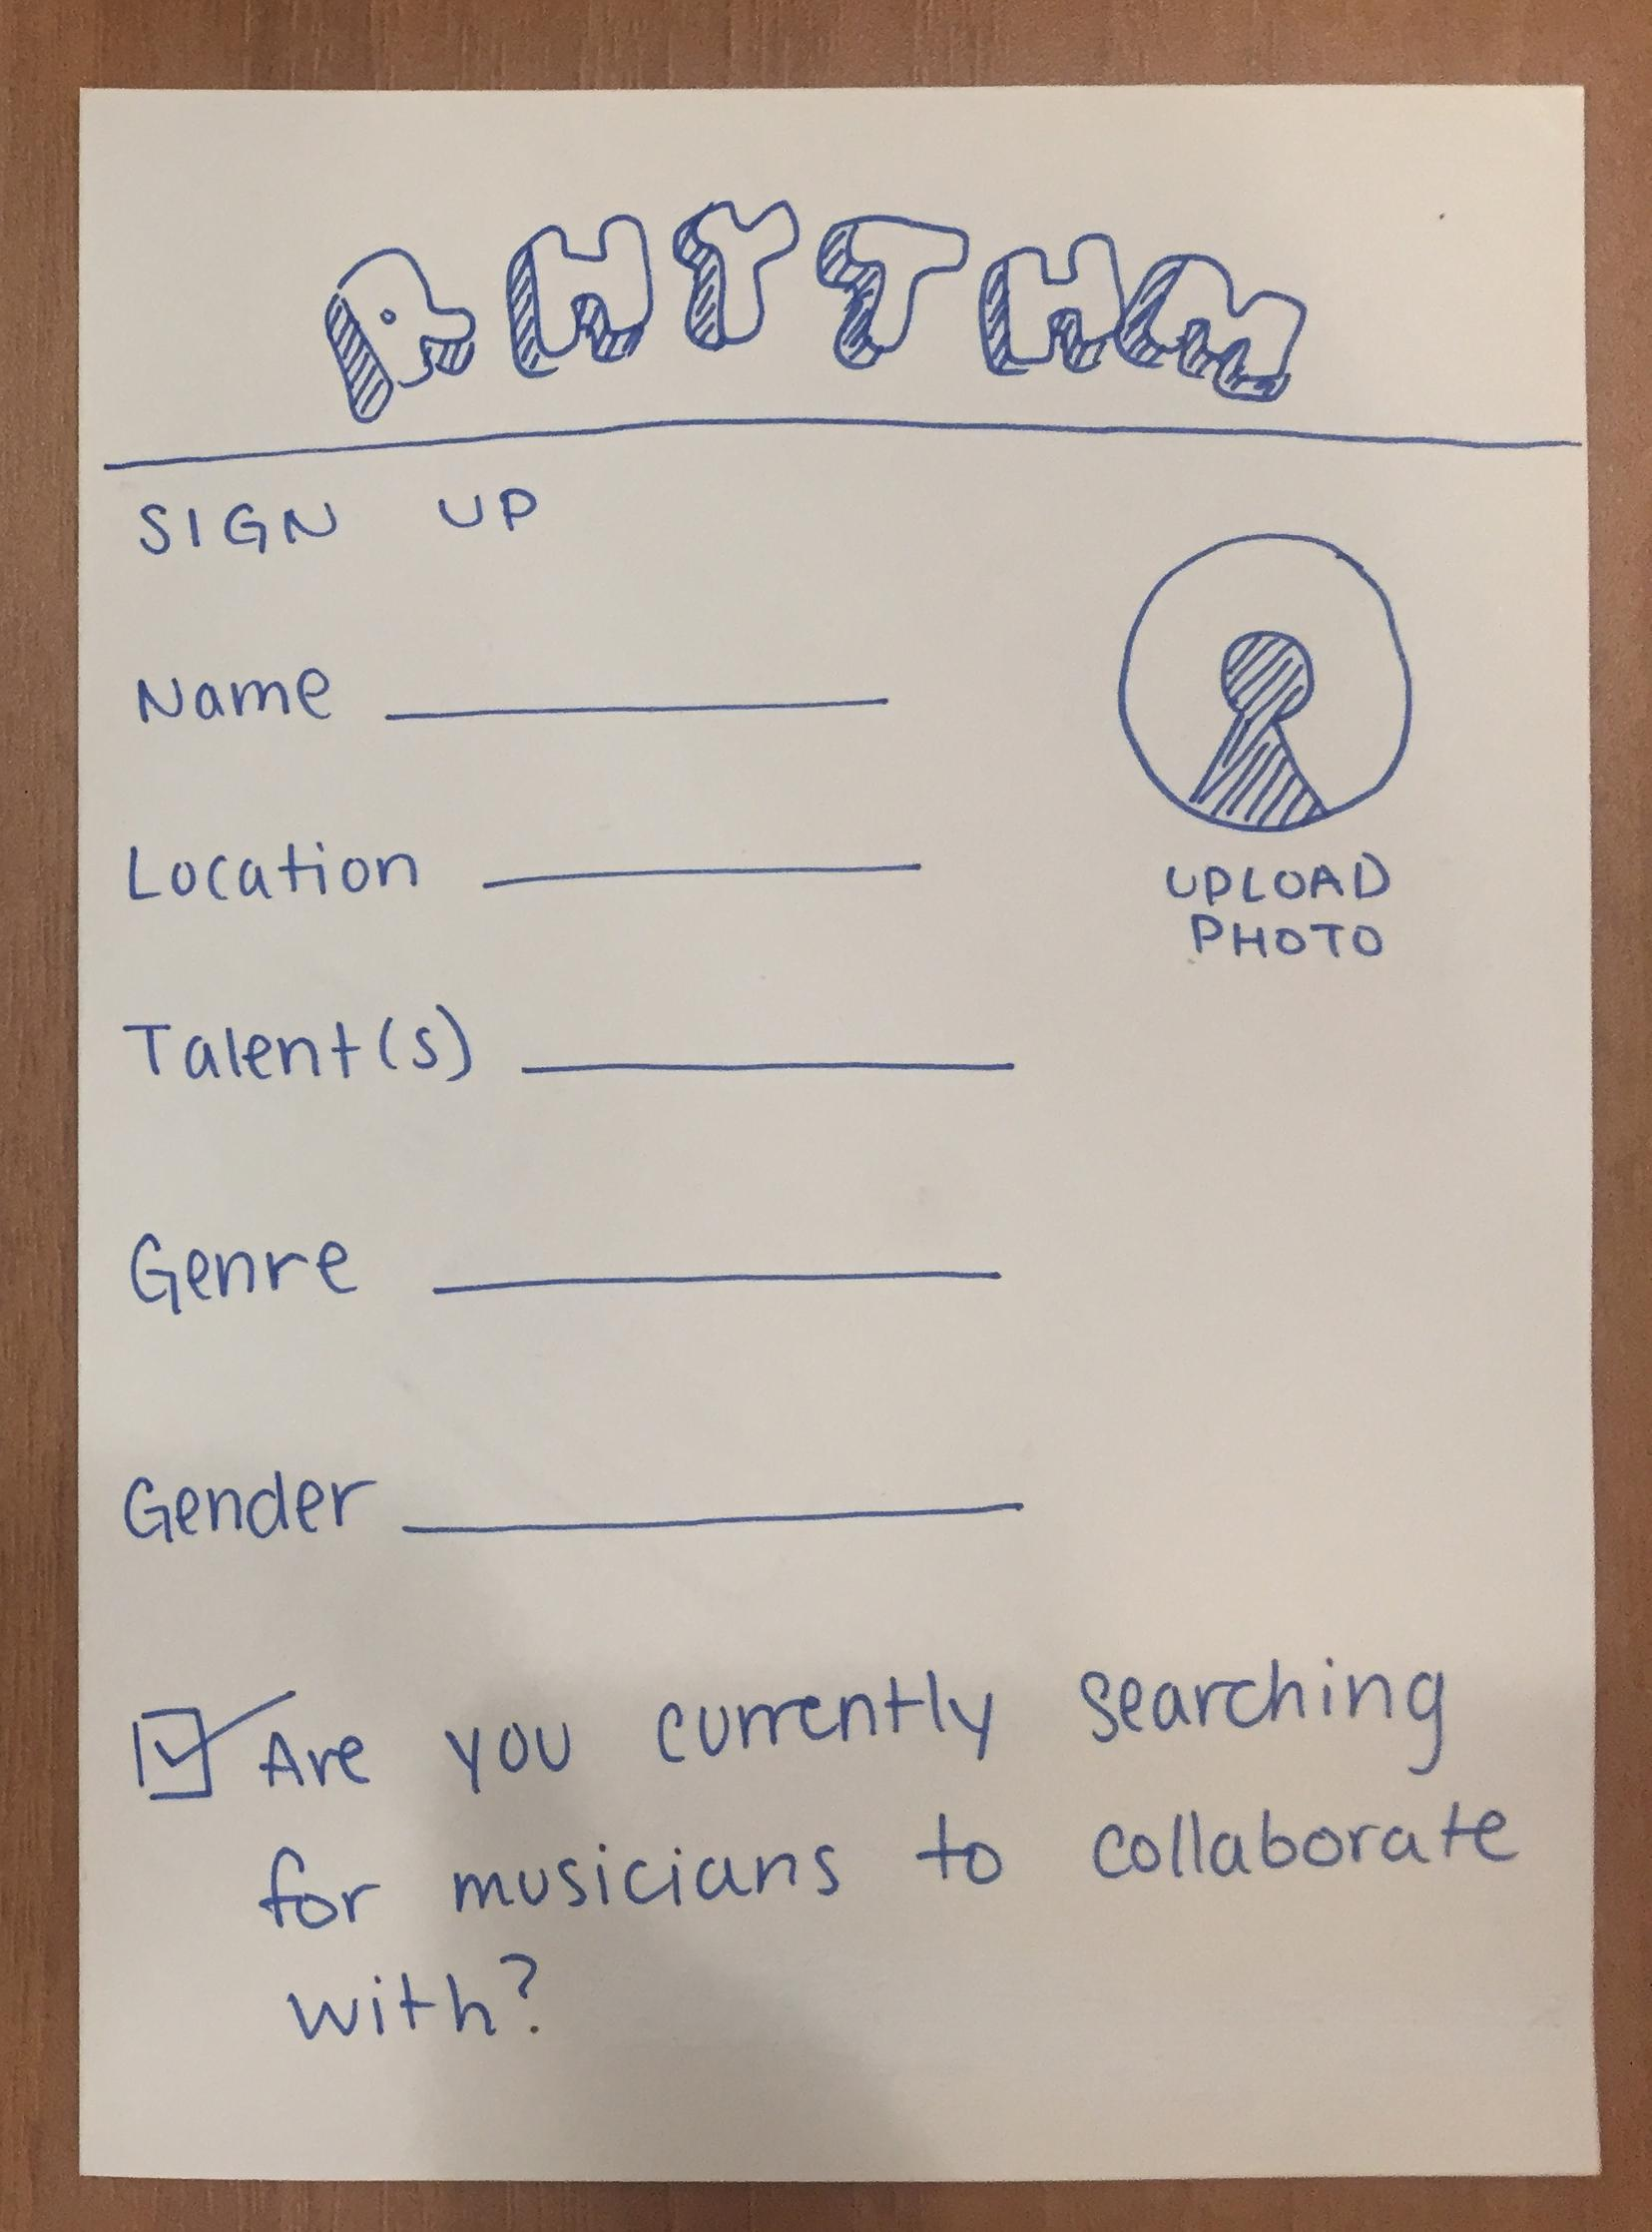 RHYTHM
SIGN UP
Name
Location
UPLOAD
PHOTO
Talent(s)
Genre
Gender
Are you currently searching
for musicians to collaborate
with?